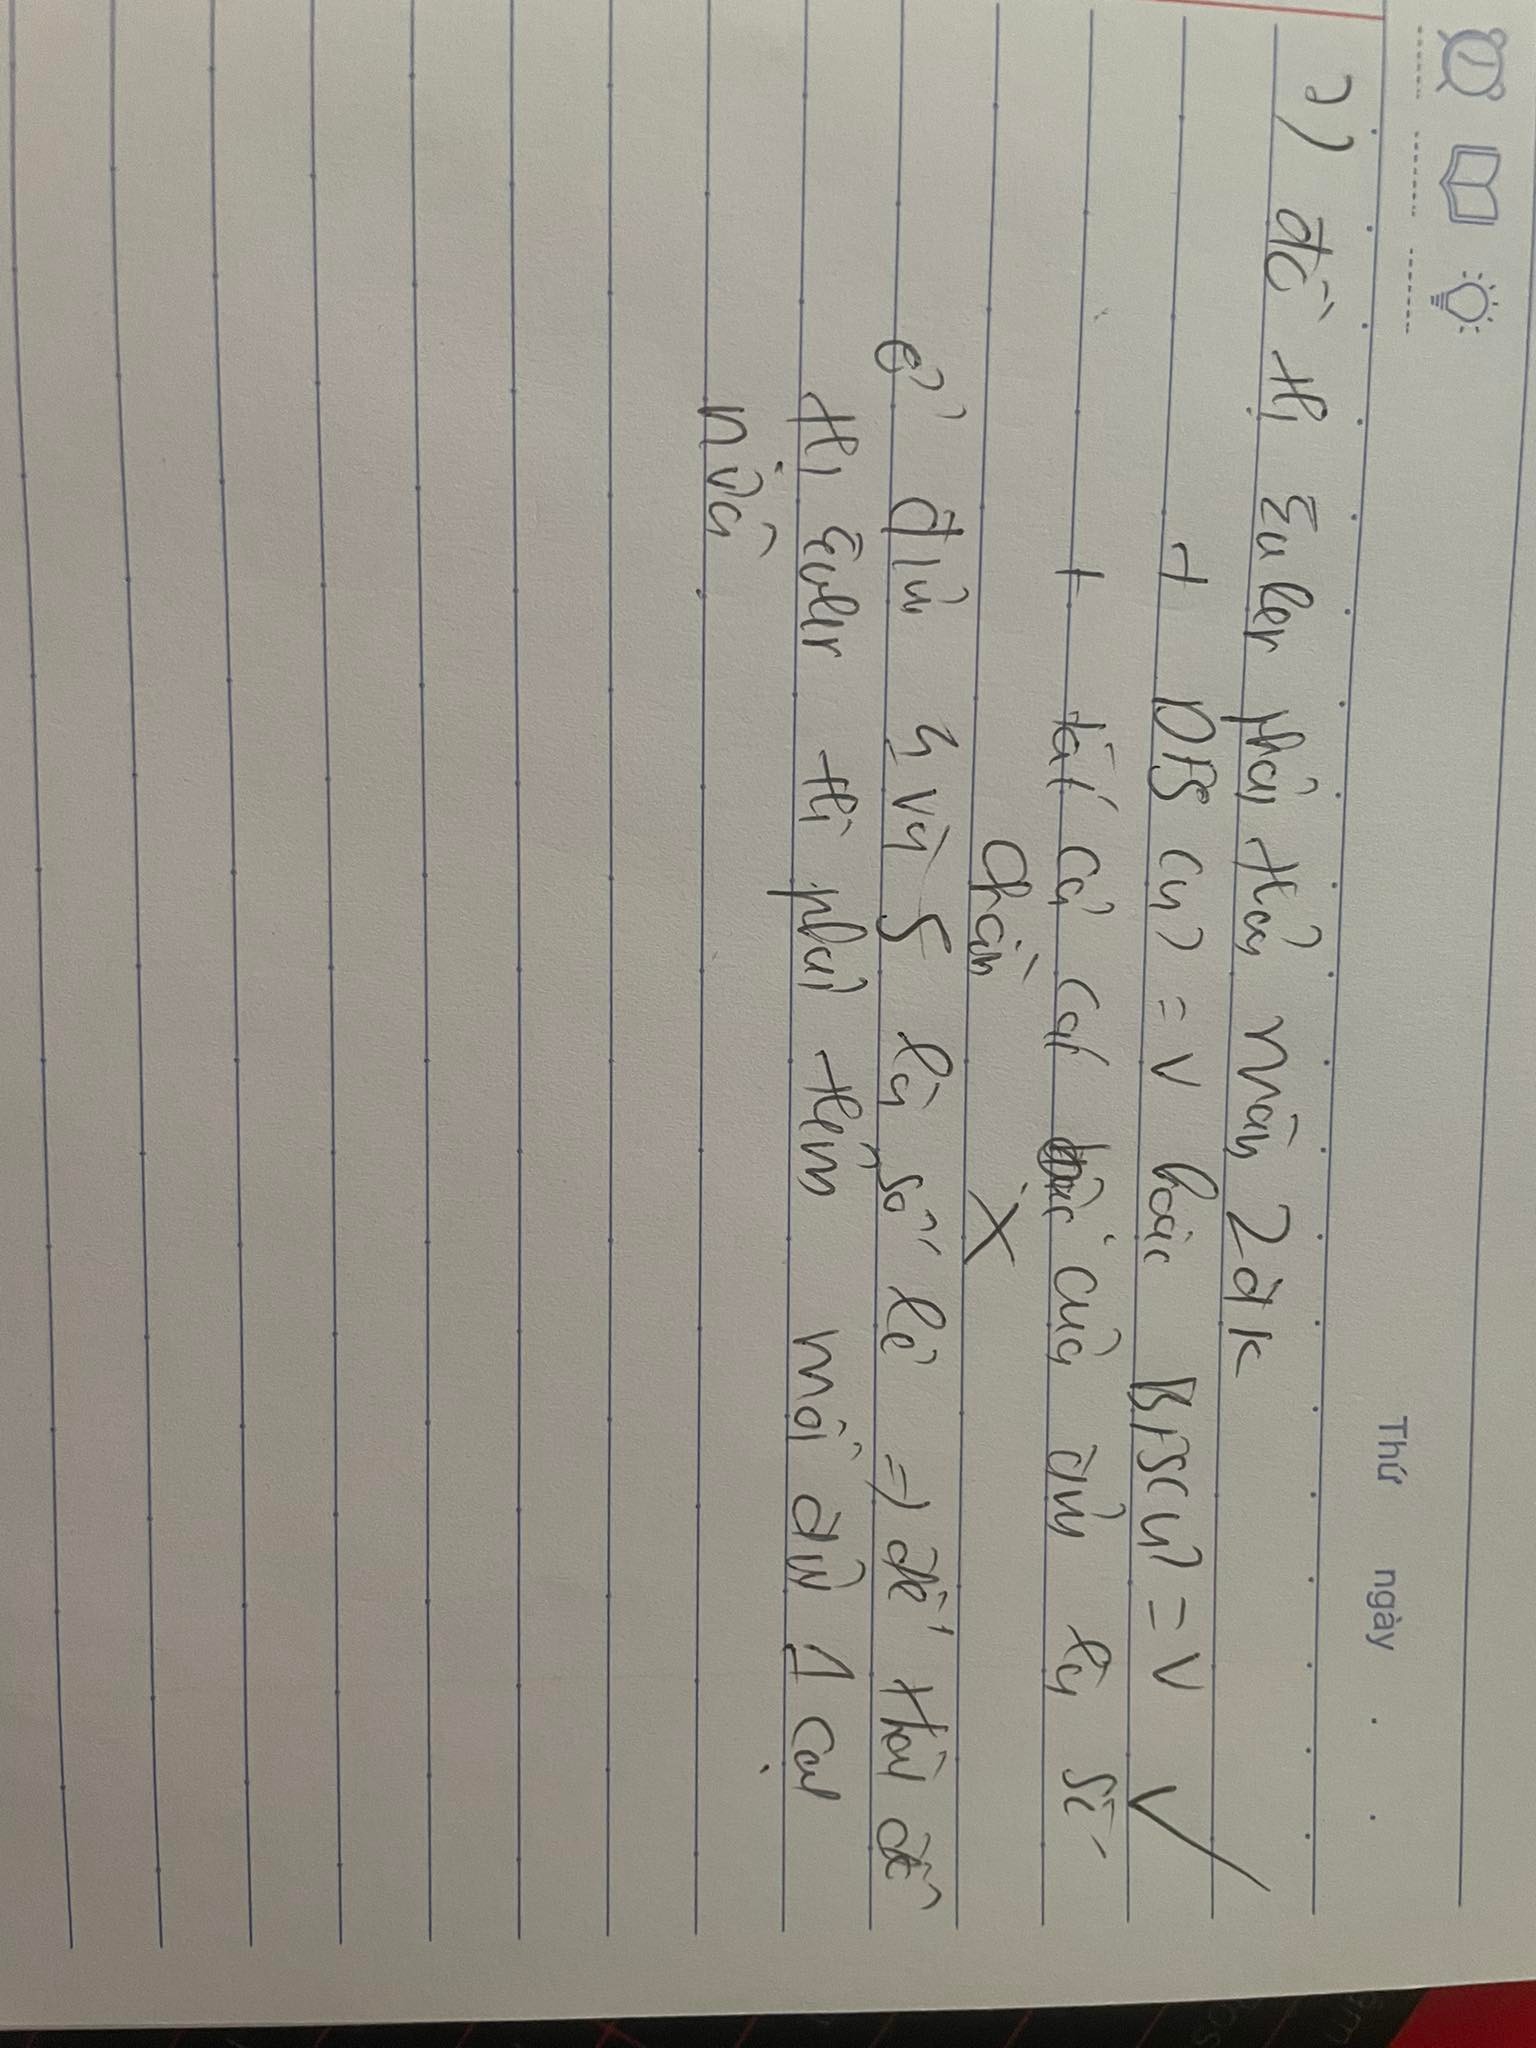 Thứ ngày . .
2) đồ thị Euler phải thỏa mãn 2 đk
+ DFS (u) = V hoặc BFS(u) = V ✓
+ tất cả các bậc của đỉnh là số
chẵn X
ở đỉnh 4 và 5 là số lẻ => để thành đồ
thị Euler thì phải thêm mỗi đỉnh 1 cạnh
nữa.